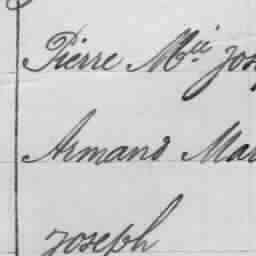 Pierre Mie Jos
Armand Mar
Joseph